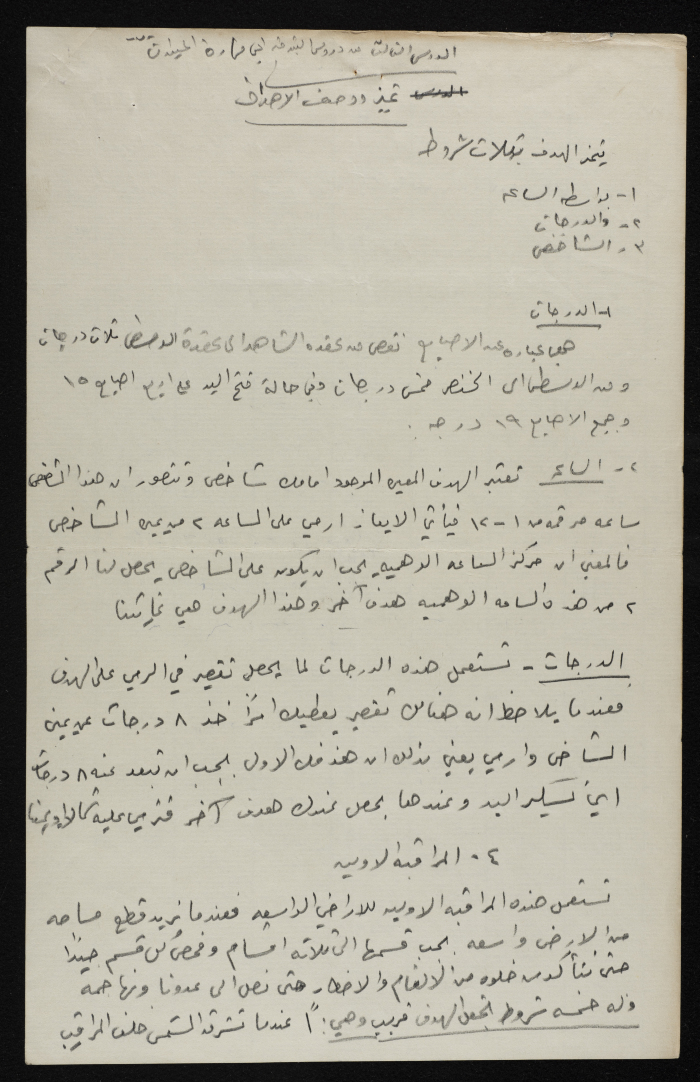 الدرس الثالث من دروس
تميز ووصف الاهداف
يتميز الهدف بثلاث شروط
١- بواسطه الساعه
٢- والدرجات
٣- الشاخص
١- الدرجات
هي عباره عن الاصابع نقص من عقده الشاهد الى عقدة الوسطى ثلاث درجات
ومن الوسطى الى الخنصر خمس درجات وفي حالة فتح اليد على اربع اصابع ١٥
وجمع الاصابع ١٩ درجه .
٢- الساعه نعتبر الهدف المعين الموجود امامك شاخص ونتصور ان هذا الشاخص
ساعه مرقمه من ١-١٢ فيأتي الايعاز ارمي على الساعه ٢ من يمين الشاخص
فالمعني ان مركز الساعه الوهميه يجب ان يكون على الشاخص يحصل لنا الرقم
٢ من هذه الساعه الوهميه هدف آخر وهذا الهدف هي غايتنا
الدرجات - تستعمل هذه الدرجات لما يحصل تقصير في الرمي على الهدف
فعندما يلاحظ انه هنالك تقصير يعطيك امراً خذ ٨ درجات عن يمين
الشاخص وارمي يعني بذلك ان هدفك الاول يجب ان تبعد عنه ٨ درجات
اي اليد وعندها يحصل عندك هدف آخر فترمي عليه شمالاً ويمينا
٤- المراقبه الاوليه
تستعمل هذه المراقبه الاوليه للاراضي الواسعه فعندما نريد قطع مساحه
من الارض واسعه يجب قسمها الى ثلاثه اقسام وفحص كل قسم جيداً
حتى نتأكد من خلوه من الالغام والاخطار حتى نصل الى عدونا ونهاجمه
وله خمسه شروط تجعل الهدف قريب وهي: ١ً عندما تشرق الشمس خلف المراقب